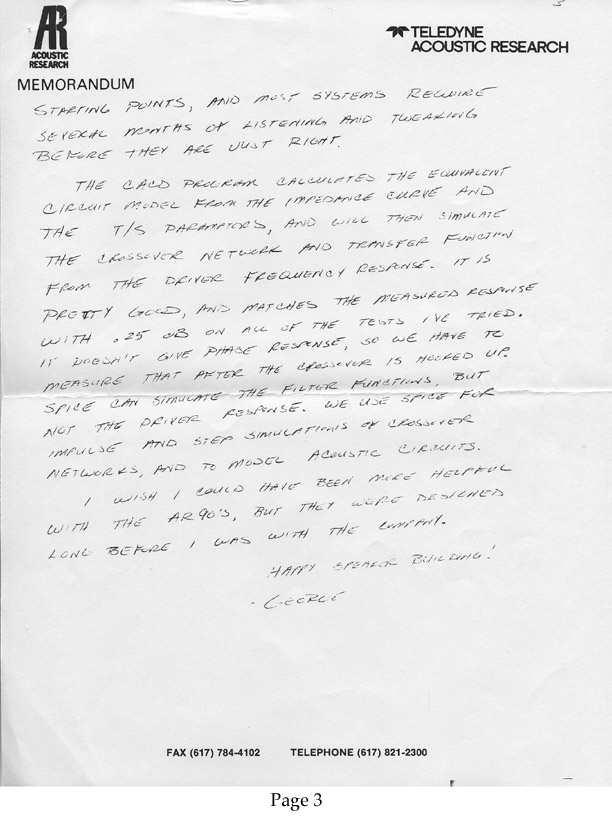 3
AR
ACOUSTIC
RESEARCH
TELEDYNE
ACOUSTIC RESEARCH
MEMORANDUM
STARTING POINTS, AND MOST SYSTEMS REQUIRE
SEVERAL MONTHS OF LISTENING AND TWEAKING
BEFORE THEY ARE JUST RIGHT.
THE CACD PROGRAM CALCULATED THE EQUIVALENT
CIRCUIT MODEL FROM THE IMPEDANCE CURVE AND
THE T/S PARAMATORS, AND WILL THEN SIMULATE
THE CROSSOVER NETWORK AND TRANSFER FUNCTION
FROM THE DRIVER FREQUENCY RESPONSE. IT IS
PRETTY GOOD, AND MATCHES THE MEASURED RESPONSE
WITH .25 dB ON ALL OF THE TESTS I'VE TRIED.
IT DOESN'T GIVE PHASE RESPONSE, SO WE HAVE TO
MEASURE THAT AFTER THE CROSSOVER IS HOOKED UP.
SPICE CAN SIMULATE THE FILTER FUNCTIONS, BUT
NOT THE DRIVER RESPONSE. WE USE SPICE FOR
IMPULSE AND STEP SIMULATIONS OF CROSSOVER
NETWORKS, AND TO MODEL ACOUSTIC CIRCUITS.
I WISH I COULD HAVE BEEN MORE HELPFUL
WITH THE AR90'S, BUT THEY WERE DESIGNED
LONG BEFORE I WAS WITH THE COMPANY.
HAPPY SPEAKER BUILDING!
- GEORGE
FAX (617) 784-4102 TELEPHONE (617) 821-2300
Page 3